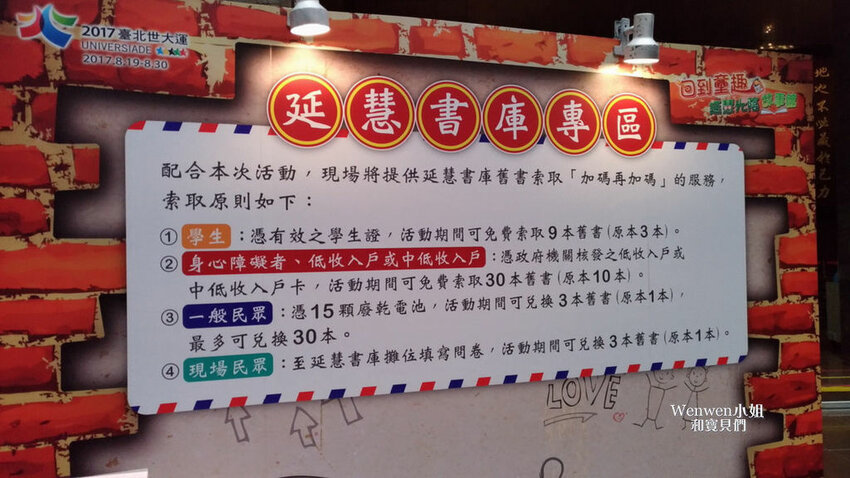 2017臺北世大運
UNIVERSIADE
2017.8.19-8.30
回到童趣
延慧書庫專區
配合本次活動，現場將提供延慧書庫舊書索取「加碼再加碼」的服務，
索取原則如下：
① 學生：憑有效之學生證，活動期間可免費索取9本舊書(原本3本)。
② 身心障礙者、低收入戶或中低收入戶：憑政府機關核發之低收入戶或
中低收入戶卡，活動期間可免費索取30本舊書(原本10本)。
③ 一般民眾：憑15顆廢乾電池，活動期間可兌換3本舊書(原本1本)，
最多可兌換30本。
④ 現場民眾：至延慧書庫攤位填寫問卷，活動期間可兌換3本舊書(原本1本)。
LOVE
Wenwen小姐
和寶貝們